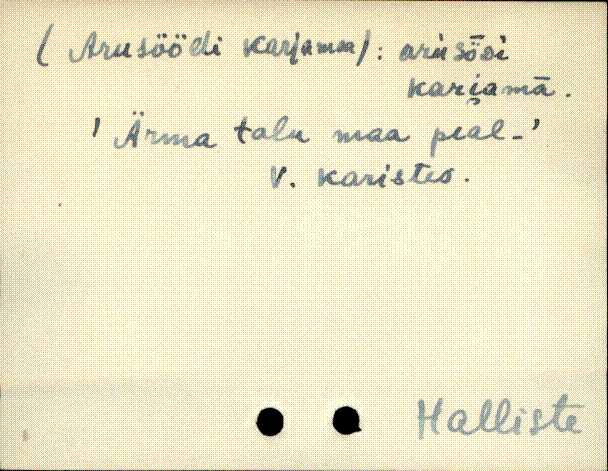 ( Arusöödi karjamaa): arüsȫdi
kari̮amā.
' Ärma talu maa peal-'
V. Karistes.
Halliste